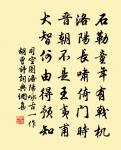 石勒童年有戰機
洛陽長嘯倚門時
晉朝不是王夷甫
大智何由得預知
司空圖洛陽詠古一作
胡曾詩詞典網